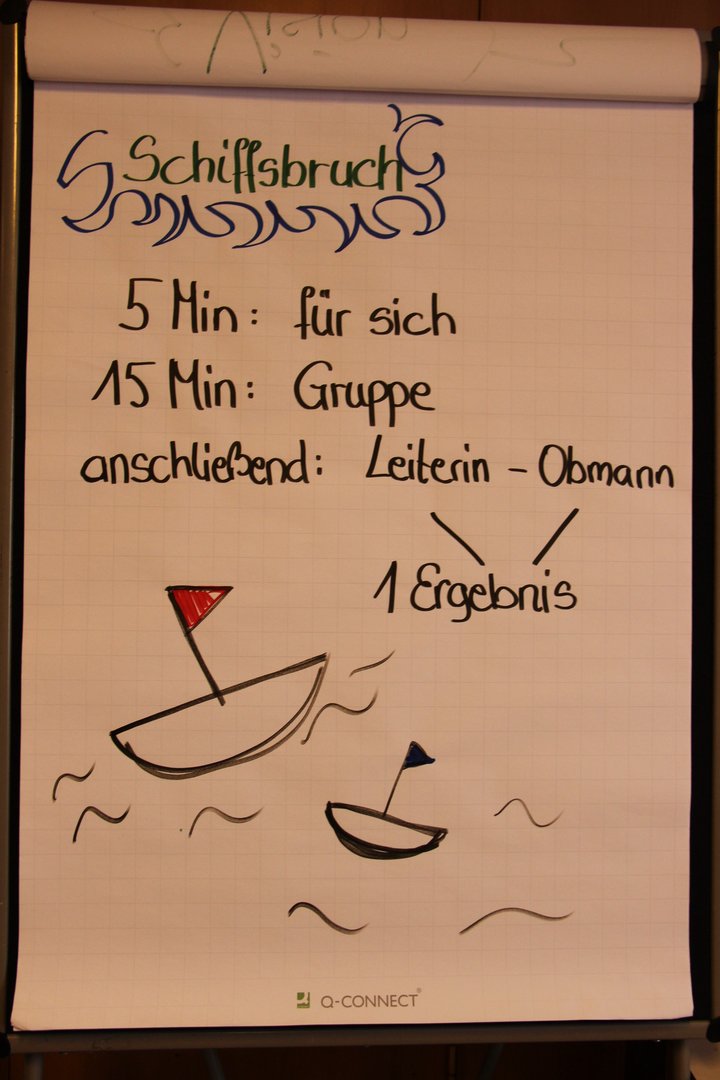 Schiffsbruch
5 Min: für sich
15 Min: Gruppe
anschließend: Leiterin - Obmann
1 Ergebnis
Q-CONNECT®